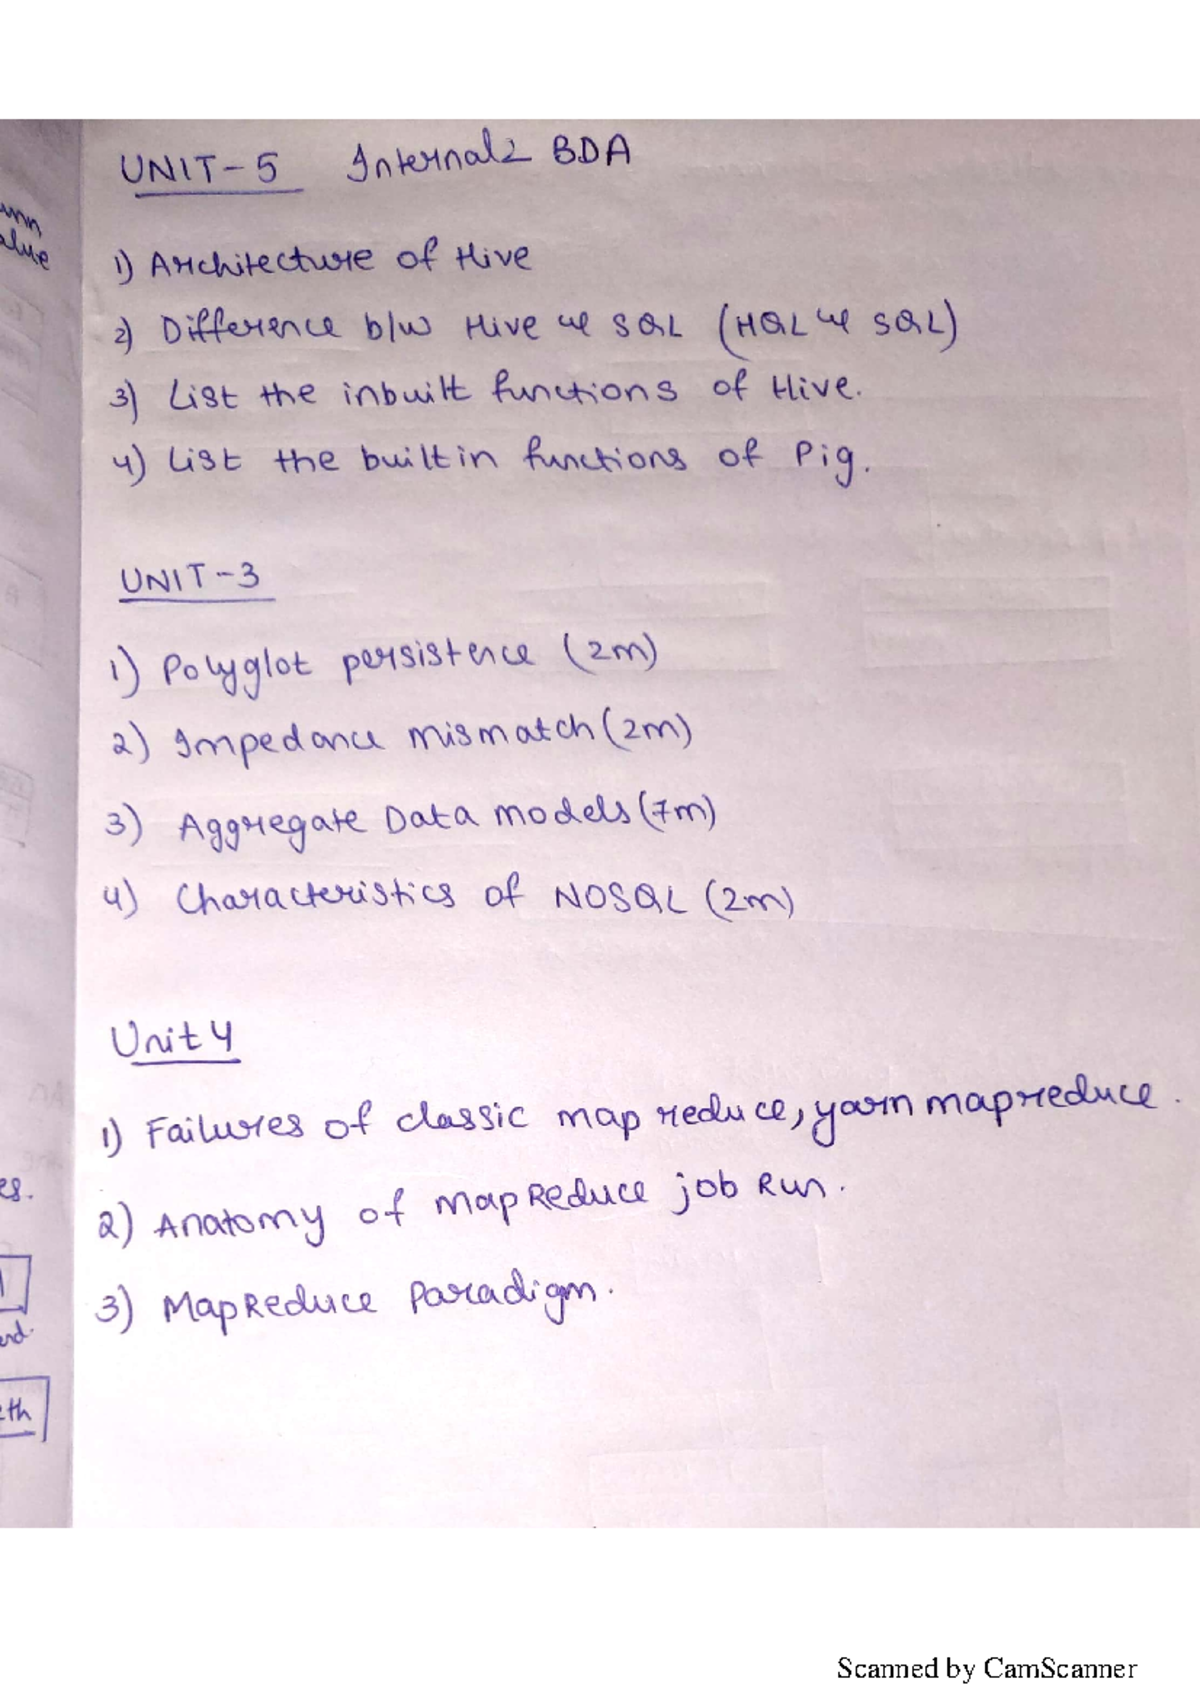 UNIT-5 Internal2 BDA
1) Architecture of Hive
2) Difference b/w Hive & SQL (HQL & SQL)
3) List the inbuilt functions of Hive.
4) List the builtin functions of Pig.
UNIT-3
1) Polyglot persistence (2m)
2) Impedance mismatch (2m)
3) Aggregate Data models (7m)
4) Characteristics of NOSQL (2m)
Unit 4
1) Failures of classic map reduce, yarn mapreduce.
2) Anatomy of MapReduce job Run.
3) MapReduce Paradigm.
Scanned by CamScanner